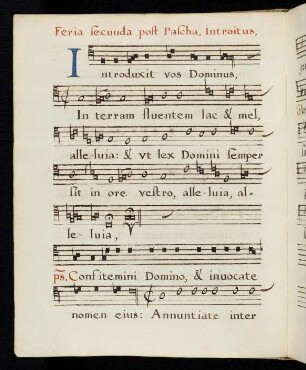 Feria ſecunda poſt Paſcha, Introitus,
Introduxit vos Dominus,
In terram fluentem lac & mel,
alle-luia: & vt lex Domini ſemper
ſit in ore veſtro, alle-luia, al-
le-luia,
pſ, Confitemini Domino, & inuocate
nomen eius: Annuntiate inter